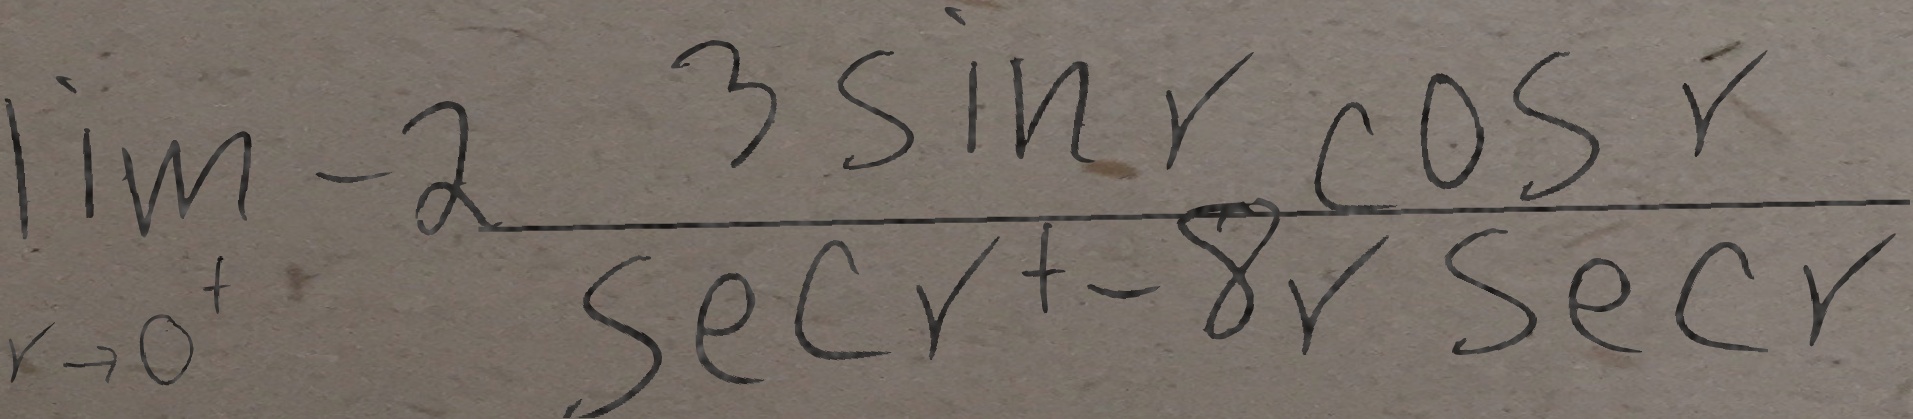 \lim_{r \to 0^+} -2 \frac{3 \sin r \cos r}{\sec r + -8r \sec r}